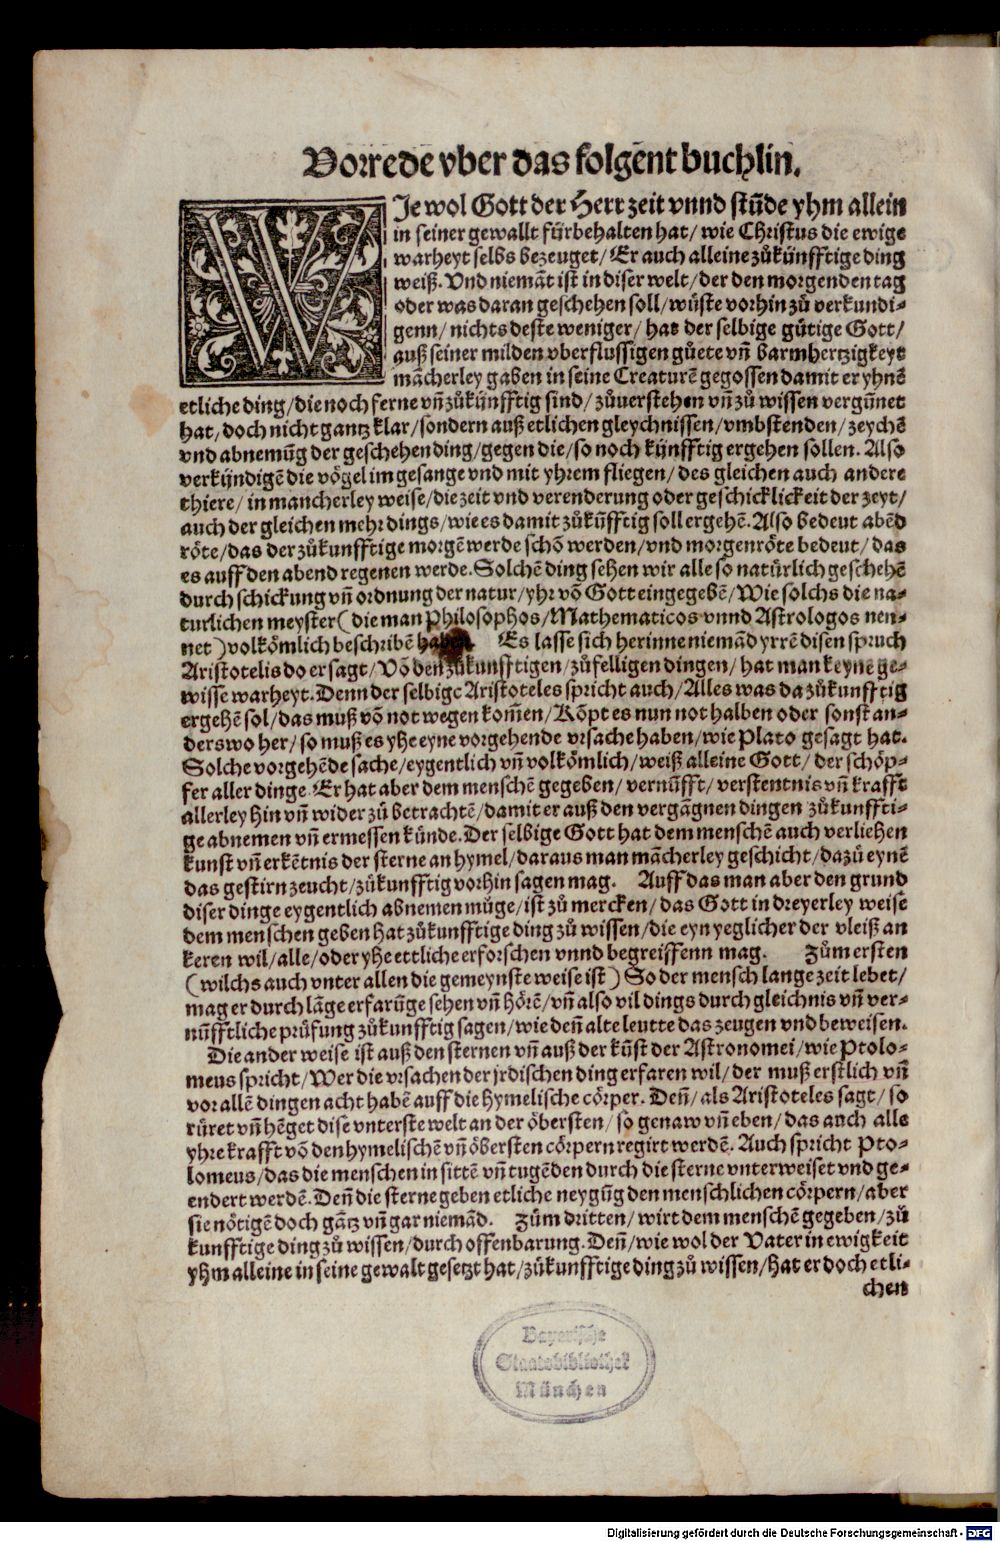 Vorrede vber das folgēnt buchlin.
WJe wol Gott der Herr zeit vnnd stūde yhm allein
in seiner gewallt fürbehalten hat/ wie Christus die ewige
warheyt selbs bezeuget/ Er auch alleine zůkünfftige ding
weiß. Vnd niemāt ist in diser welt/ der den morgenden tag
oder was daran geschehen soll/ wüste vorhin zů verkundi-
genn/ nichts deste weniger/ hat der selbige gütige Gott/
auß seiner milden vberflussigen gůete vñ barmhertzigkeyt
mācherley gaben in seine Creaturē gegossen damit er yhnē
etliche ding/ die noch ferne vñ zůkünfftig sind/ zůuerstehen vñ zů wissen vergünnet
hat/ doch nicht gantz klar/ sondern auß etlichen gleychnissen/ vmbstenden/ zeychē
vnd abnemūg der geschehen ding/ gegen die/ so noch künfftig ergehen sollen. Also
verkündigē die vögel im gesange vnd mit yhrem fliegen/ des gleichen auch andere
thiere/ in mancherley weise/ die zeit vnd verenderung oder geschicklickeit der zeyt/
auch der gleichen mehr dings/ wie es damit zůkūfftig soll ergehē. Also bedeut abēd
röte/ das der zůkunfftige morgē werde schō werden/ vnd morgenröte bedeut/ das
es auff den abend regenen werde. Solchē ding sehen wir alle so natürlich geschehē
durch schickung vñ ordnung der natur/ yhr vō Gott eingegebē/ Wie solchs die na-
turlichen meyster (die man Philosophos/ Mathematicos vnnd Astrologos nen-
net) volkōmlich beschribē haben. Es lasse sich herinne niemād yrrē disen spruch
Aristotelis do er sagt/ Vō den zůkunfftigen/ zůfelligen dingen/ hat man keyne ge-
wisse warheyt. Denn der selbige Aristoteles spricht auch/ Alles was da zůkunfftig
ergehē sol/ das muß vō not wegen kom̄en/ Kōpt es nun not halben oder sonst an-
derswo her/ so muß es yhe eyne vorgehende vrsache haben/ wie Plato gesagt hat.
Solche vorgehēde sache/ eygentlich vñ volkōmlich/ weiß alleine Gott/ der schöp-
fer aller dinge. Er hat aber dem menschē gegeben/ vernūfft/ verstentnis vñ krafft
allerley hin vñ wider zů betrachtē/ damit er auß den vergāgnen dingen zůkunffti-
ge abnemen vñ ermessen künde. Der selbige Gott hat dem menschē auch verliehen
kunst vñ erkētnis der sterne an hymel/ daraus man mācherley geschicht/ dazů eynē
das gestirn zeucht/ zůkunfftig vorhin sagen mag. Auff das man aber den grund
diser dinge eygentlich abnemen müge/ ist zů mercken/ das Gott in dreyerley weise
dem menschen geben hat zůkunfftige ding zů wissen/ die eyn yeglicher der vleiß an
keren wil/ alle/ oder yhe ettliche erforschen vnnd begreiffenn mag. Zům ersten
(wilchs auch vnter allen die gemeynste weise ist) So der mensch lange zeit lebet/
mag er durch lāge erfarūge sehen vñ hörē/ vñ also vil dings durch gleichnis vñ ver-
nūfftliche prüfung zůkunfftig sagen/ wie deñ alte leutte das zeugen vnd beweisen.
Die ander weise ist auß den sternen vñ auß der kūst der Astronomei/ wie Ptolo-
meus spricht/ Wer die vrsachen der jrdischen ding erfaren wil/ der muß erstlich vñ
vor allē dingen acht habē auff die hymelische cörper. Deñ/ als Aristoteles sagt/ so
rüret vñ hēget dise vnterste welt an der öbersten/ so genaw vñ eben/ das auch alle
yhre krafft vō den hymelischē vñ öbersten cörpern regirt werdē. Auch spricht Pto-
lomeus/ das die menschen in sittē vñ tugēden durch die sterne vnterweiset vnd ge-
endert werdē. Deñ die sterne geben etliche neygūg den menschlichen cörpern/ aber
sie nötigē doch gātz vñ gar niemād. Zům dritten/ wirt dem menschē gegeben/ zů
kunfftige ding zů wissen/ durch offenbarung. Deñ/ wie wol der Vater in ewigkeit
yhm alleine in seine gewalt gesetzt hat/ zůkunfftige ding zů wissen/ hat er doch etli-
chen
Bayerische
Staatsbibliothek
München
Digitalisierung gefördert durch die Deutsche Forschungsgemeinschaft - DFG